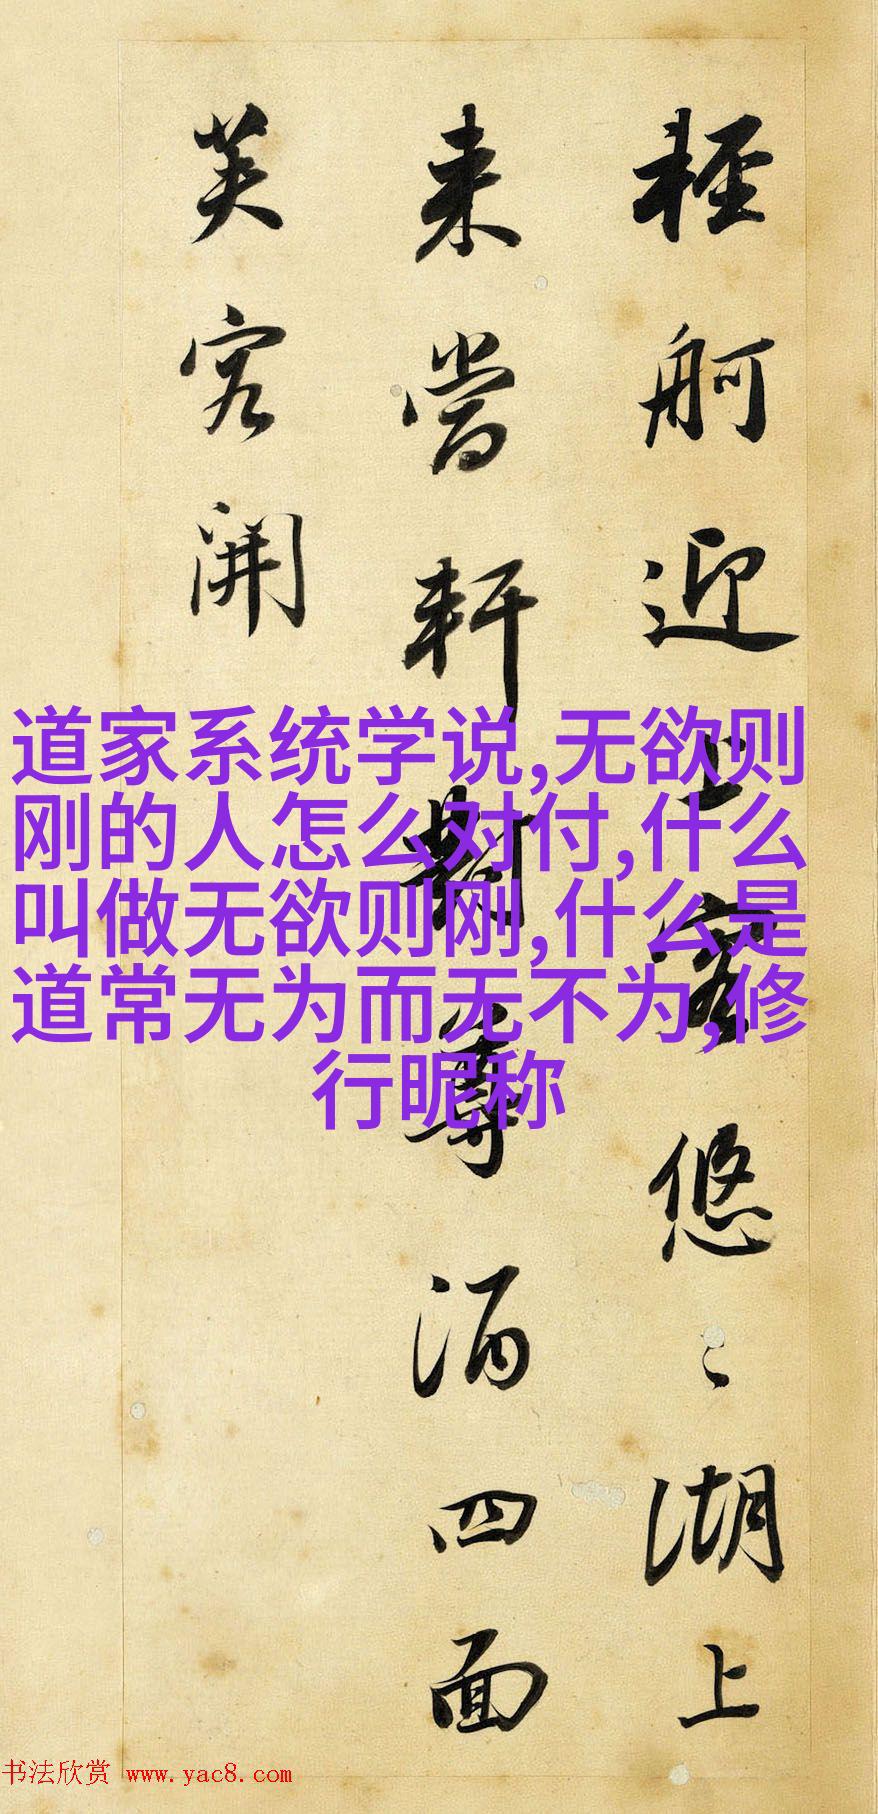 輕舸迎上客悠〻湖上
来當軒對尊酒四面
芙容開
道家系统学说,无欲则
刚的人怎么对付,什么
叫做无欲则刚,什么是
道常无为而无不为,修
行昵称
书法欣赏 www.yac8.com